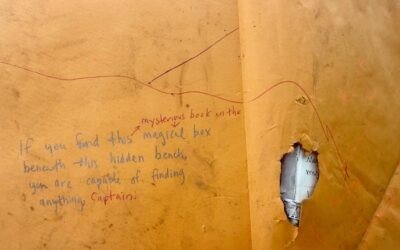 mysterious book in the
If you find this magical box
beneath this hidden bench,
you are capable of finding
anything, Captain.